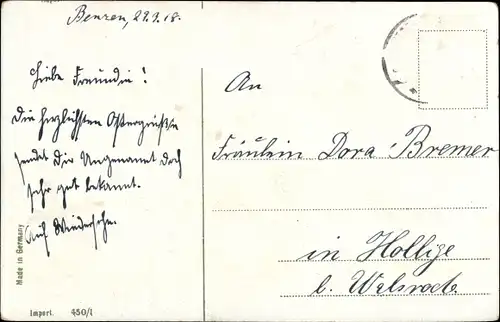 Benzen, 29.3.18.
Liebe Freundin!
Die herzlichsten Ostergrüße
sendet Dir Ungenannt doch
sehr gut bekannt.
Auf Wiedersehn.
An
Fräulein Dora Bremer
in Hollige
b. Walsrode
Made in Germany
Import. 450/1